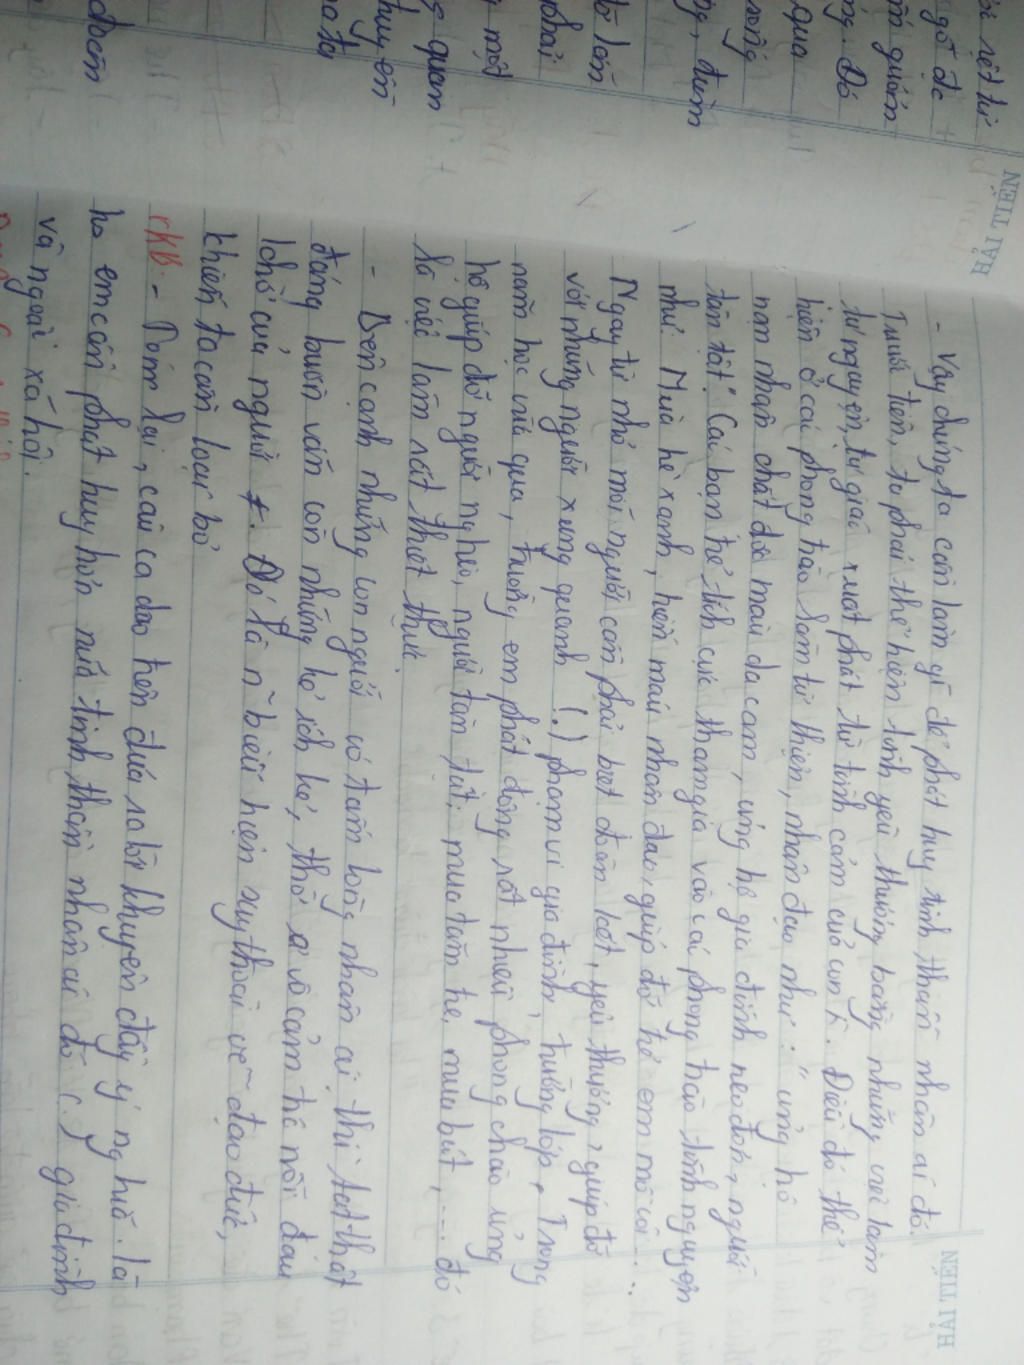 HẢI TIẾN
HẢI TIẾN
- Vậy chúng ta cần làm gì để phát huy tinh thần nhân ái đó.
Trước tiên, ta phải thể hiện tình yêu thương bằng những việc làm
tự nguyện, tự giác xuất phát từ tình cảm của con . Điều đó thể
hiện ở các phong trào làm từ thiện, nhân đạo như: "ủng hộ
nạn nhân chất độc màu da cam, ủng hộ gia đình neo đơn, người
tàn tật". Các bạn trẻ tích cực tham gia vào cá phong trào tình nguyện
như: Mùa hè xanh, hiến máu nhân đạo, giúp đỡ trẻ em mồ côi...
Ngay từ nhỏ mỗi người cần phải biết đoàn kết, yêu thương, giúp đỡ
với những người xung quanh (.) phạm vi gia đình, trường lớp. Trong
năm học vừa qua, trường em phát động rất nhiều phong chào ủng
hộ giúp đỡ người nghèo, người tàn tật: mua tăm tre, mua bút,... đó
là việc làm rất thiết thực.
- Bên cạnh những con người có tấm lòng nhân ái thì thật
đáng buồn vẫn còn những kẻ ích kỷ, thờ ơ vô cảm trc nỗi đau
khổ của người #. Đó là n~ biểu hiện suy thoái về đạo đức,
khiến ta cần loại bỏ
rKB:- Tóm lại, câu ca dao trên đưa ra lời khuyên đầy ý nghĩa. Là
hs em cần phát huy hơn nữa tinh thần nhân ái đó (.) gia đình
và ngoài xã hội.
góp đc
qua
đùm
phải
một
quan
khuyên
đoàn